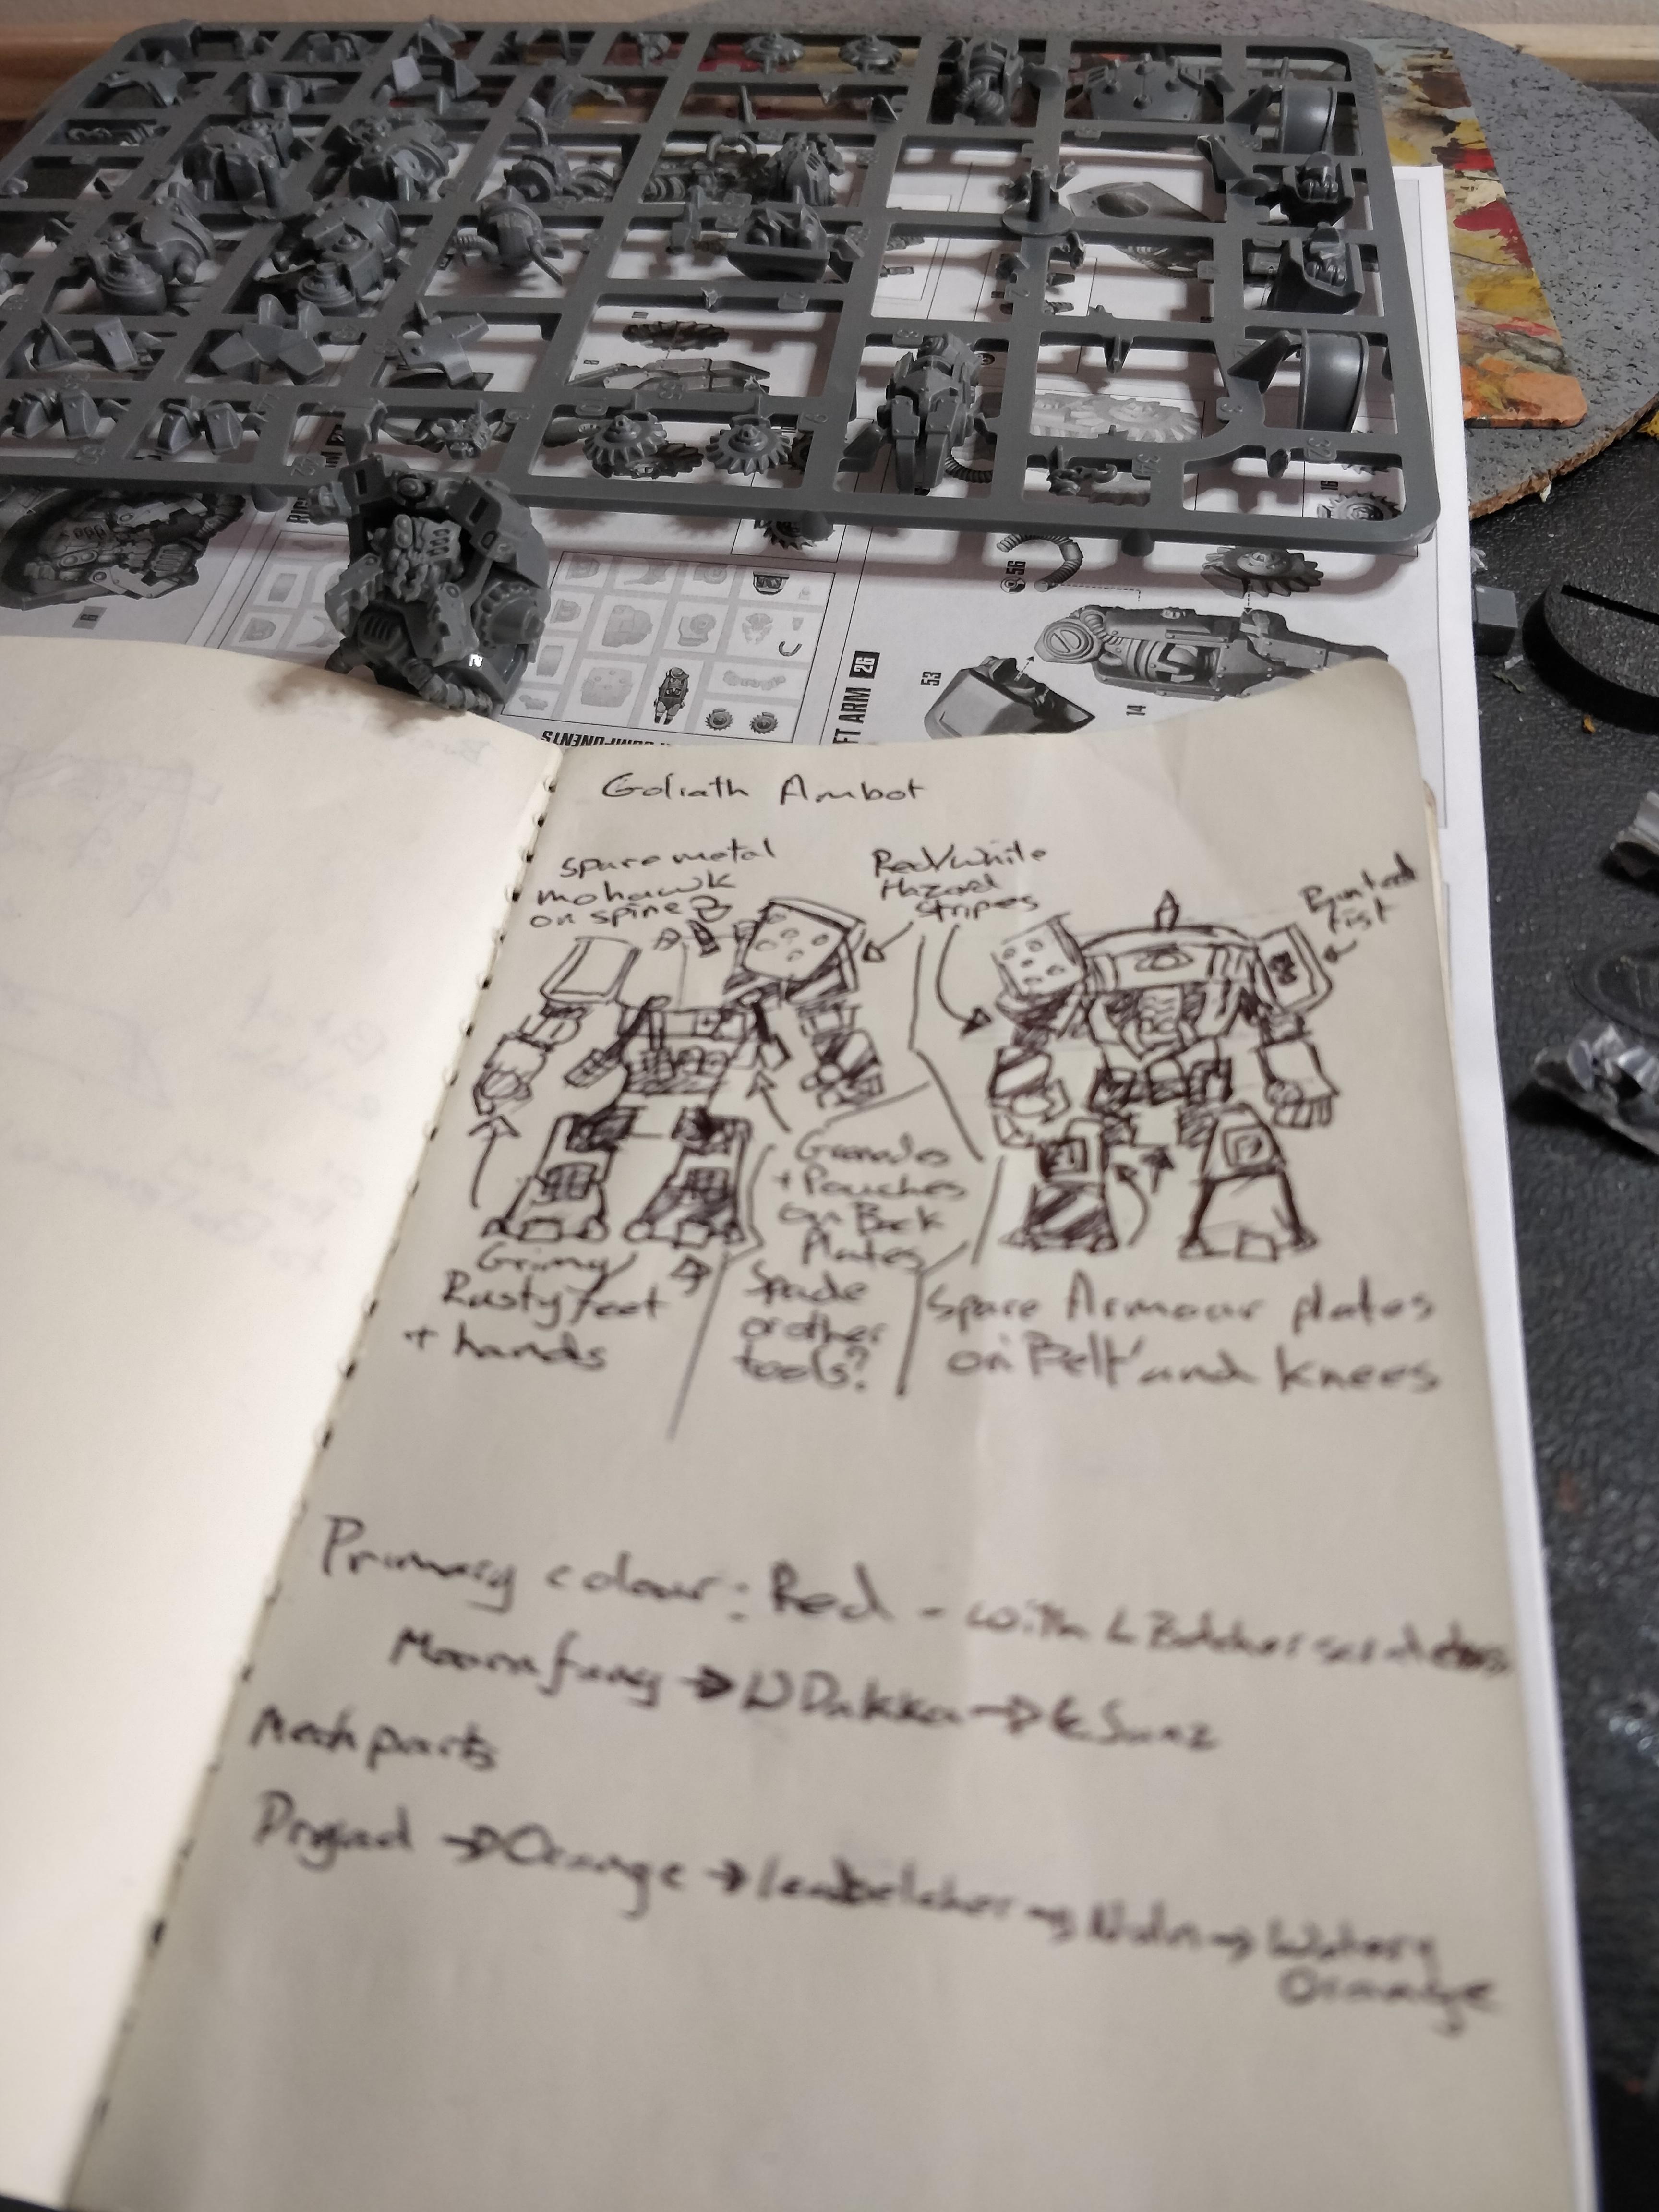 Goliath Ambot
spare metal
mohawk
on spine?
Red/white
Hazard
stripes
Painted
fist
Grenades
+ Pouches
on Back
Plates
Spade
or other
tools?
Grimy/
Rusty feet
+ hands
Spare Armour plates
on Belt and Knees
Primary colour: Red - with L Belcher scratches
Moornfang → W Dakka → E Sunz
Mech parts
Dryad → Orange → leadbelcher → Nuln → Watery
Orange
FT ARM 26
53
14
56
16
COMPONENTS